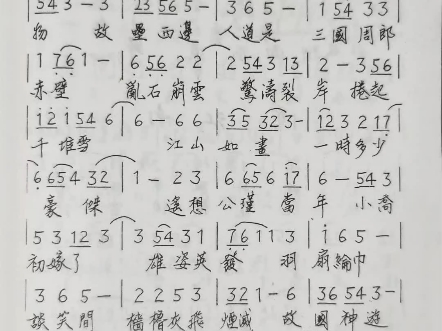 | 54 3 - 3 | 23 56 5 - | 3 6 5 - | 1 54 3 3
物 故 壘 西邊 人道是 三國 周郎
| 1 76 1 - | 6 56 2 2 | 2 54 3 13 | 2 - 3 56 |
赤壁 亂石崩雲 驚濤裂岸 捲起
| 12 1 54 6 | 6 - 6 6 | 35 32 3 - | 12 3 2 17 |
千堆雪 江山如畫 一時多少
| 6 65 4 32 | 1 - 2 3 | 6 65 6 17 | 6 - 54 3 |
豪傑 遙想公瑾當年 小喬
| 5 3 12 3 | 3 54 3 1 | 76 1 1 3 | 1 6 5 - |
初嫁了 雄姿英發 羽扇綸巾
| 3 6 5 - | 2 2 5 3 | 32 1 - 6 | 36 54 3 - |
談笑間 檣櫓灰飛煙滅 故國神遊